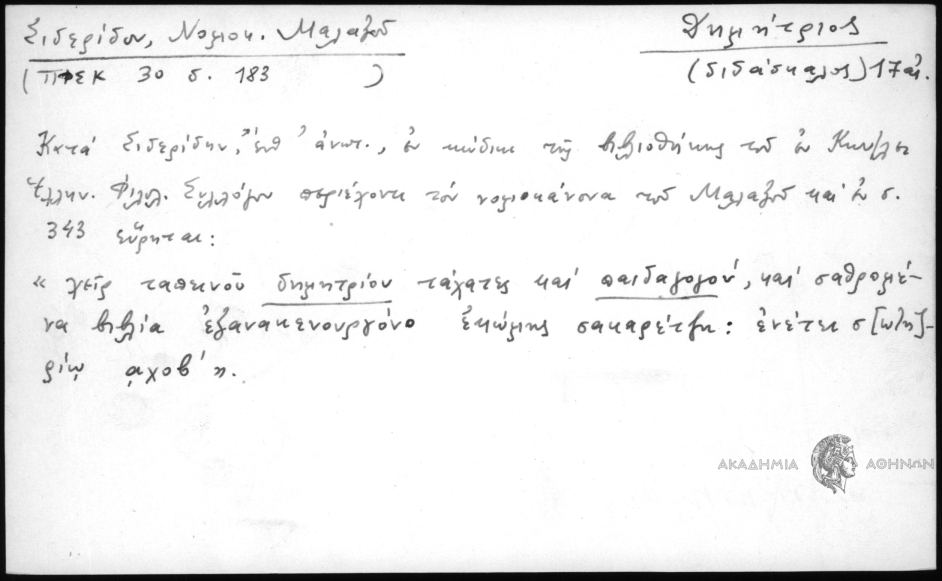 Σιδερίδου, Νομοκ. Μαλαξοῦ
Δημήτριος
(ΠΦΣΚ 30 σ. 183 )
(διδάσκαλος) 17 αἰ.
Κατά Σιδερίδην, ἔνθ' ἀνωτ., ἐν κώδικι τῆς βιβλιοθήκης τοῦ ἐν Κων/λει
Ἑλλην. Φιλολ. Συλλόγου περιέχοντι τόν νομοκάνονα τοῦ Μαλαξοῦ καί ἐν σ.
343 εὕρηται:
« χείρ ταπεινοῦ δημητρίου τάχατες καί παιδαγογού, καί σαθρομέ-
να βιβλία ἐξανακενουργόνο ἐκώμης σακαρέτζη: ἐνέτει σ[ωτη]-
ρίῳ ᾳχοβ' η.
ΑΚΑΔΗΜΙΑ ΑΘΗΝΩΝ